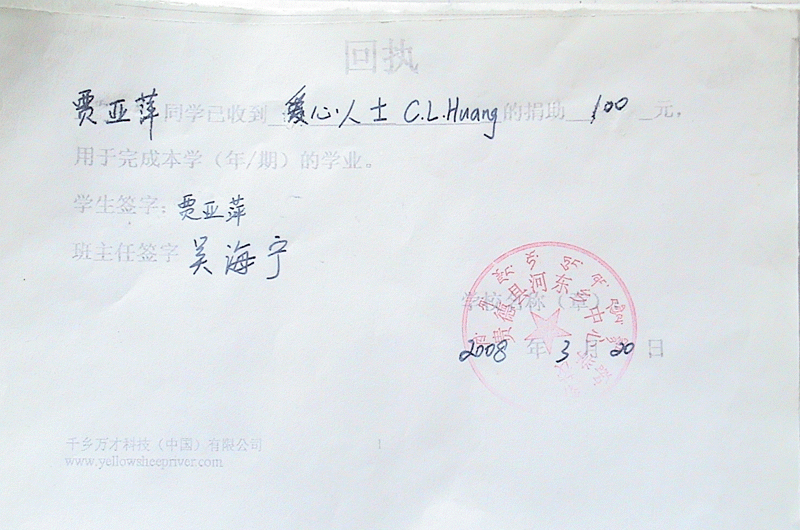 回执
贾亚萍同学已收到 爱心人士 C.L.Huang 的捐助 100 元，
用于完成本学（年/期）的学业。
学生签字：贾亚萍
班主任签字 吴海宁
学校名称（章）
贵德县河东乡中心学校
2008 年 3 月 20 日
千乡万才科技（中国）有限公司 1
www.yellowsheepriver.com